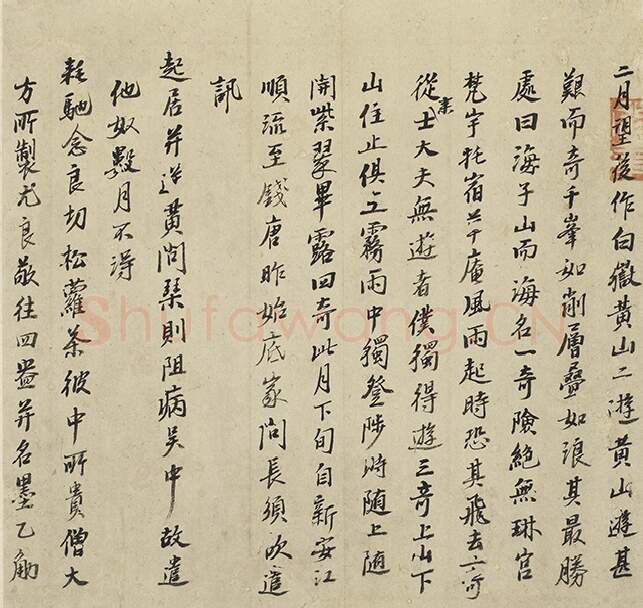 二月望後作白嶽黃山二遊黃山遊甚
艱而奇千峯如削層疊如浪其最勝
處曰海子山而海名一奇險絕無琳宮
梵宇托宿茅庵風雨起時恐其飛去亦可
從來士大夫無遊者僕獨得遊三奇上山下
山住止俱在霧雨中獨登陟時隨上隨
開紫翠畢露四奇此月下旬自新安江
順流至錢唐昨始底家問長須吹遣
訊
起居并送黃問琴則阻病吳中故遣
他奴數月不得
耗馳念良切松蘿茶彼中所貴僧大
方所製尤良敬往四壺并名墨乙觔
Shufawang.CN